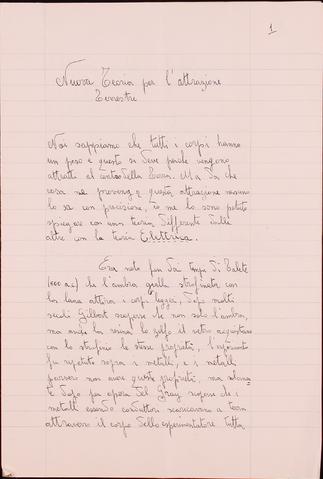 1
Nuova Teoria per l'attrazione
Terrestre
Noi sappiamo che tutti i corpi hanno
un peso e questo si deve perché vengono
attratti al centro della Terra. Ma da che
cosa ne provenga questa attrazione nessuno
lo sa con precisione, io me lo sono potuto
spiegare con una teoria differente dalle
altre con la teoria Elettrica.
Era noto fin dai tempi di Talete
(600 a.c) che l'ambra gialla strofinata con
la lana attira i corpi leggeri, dopo molti
secoli Gilbert scoperse che non solo l'ambra,
ma anche la resina lo zolfo il vetro acquistano
con lo strofinio le stesse proprietà, l'esperimento
fu ripetuto sopra i metalli, e i metalli
parvero non avere queste proprietà, ma
e dopo per opera del Gray che i
metalli essendo conduttori scaricavano a terra
attraverso il corpo dello sperimentatore tutta